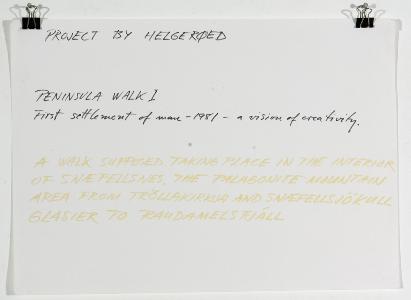 PROJECT BY HELGERØED
PENINSULA WALK I
First settlement of man - 1981 - a vision of creativity.
A WALK SUPPOSED TAKING PLACE IN THE INTERIOR
OF SNÆFELLSNES, THE PALAGONITE MOUNTAIN
AREA FROM TRÖLLAKIRKJA AND SNÆFELLSJÖKULL
GLASIER TO RAUDAMELSFJÄLL